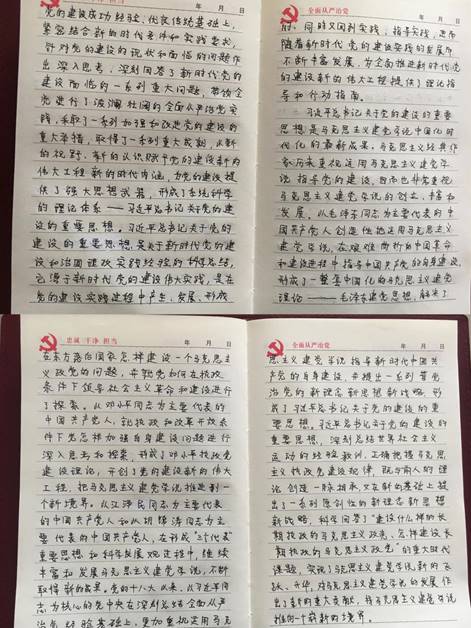 党的建设成功经验、优良传统基础上，
紧密结合新的时代条件和实践要求，
针对党的建设的现状和面临的问题作
出深入思考，深刻回答了新时代党的
建设面临的一系列重大问题，带领全
党进行了波澜壮阔的全面从严治党实
践，采取了一系列加强和改进党的建设的
重大举措，取得了一系列重大成就，从新
的视野、新的认识赋予党的建设新的
伟大工程新的时代内涵，为党的建设提
供了强大思想武器，形成了系统科学
的理论体系——习近平总书记关于党的建
设的重要思想。习近平总书记关于党的
建设的重要思想，是关于新时代党的建
设和治国理政实践经验的科学总结，
它源于新时代党的建设伟大实践，是在
党的建设实践进程中产生、发展、形成
全面从严治党
年 月 日
的，同时又回到实践，指导实践，更南
随着新时代党的建设实践的发展而
不断丰富发展，为全面推进新时代党
的建设新的伟大工程提供了理论指
导和行动指南。
习近平总书记关于党的建设的重要
思想，是马克思主义建党学说中国化时
代化的最新成果。马克思主义经典作
家历来重视运用马克思主义建党学
说指导党的建设，因而也非常重视
马克思主义建党学说的创立、丰富和
发展。以毛泽东同志为主要代表的中
国共产党人创造性地运用马克思主义
建党学说，在艰难曲折的中国革命
和建设进程中指导中国共产党的自身建设，
形成了一整套中国化的马克思主义建党
理论——毛泽东建党思想，解决了
忠诚 干净 担当
年 月 日
在东方落后国家怎样建设一个马克思主
义政党的问题，并就党如何在执政
条件下领导社会主义革命和建设进行
了探索。以邓小平同志为主要代表的
中国共产党人，就执政和改革开放条
件下党怎样加强自身建设问题进行
深入思考和探索，形成了邓小平执政党
建设理论，开创了党的建设新的伟大
工程，把马克思主义建党学说推进到一
个新境界。以江泽民同志为主要代表
的中国共产党人和以胡锦涛同志为主
要代表的中国共产党人，在形成“三个代表”
重要思想和科学发展观进程中，继续
丰富和发展马克思主义建党学说，不断
取得新的成果。党的十八大以来，以习近平同
志为核心的党中央在深刻总结全面从严
治党经验基础上，更加重视运用马克
全面从严治党
年 月 日
思主义建党学说指导新时代中国共
产党的自身建设，并提出一系列管党
治党的新理念新思想新战略，形
成了习近平总书记关于党的建设的重
要思想。习近平总书记关于党的建设的
重要思想，深刻总结世界社会主义
运动的经验教训，正确把握马克思主
义执政党建设规律，既与前人的理
论创造一脉相承，又在新的基础上提
出了一系列原创性的新理念新思想
新战略，科学回答了“建设什么样的长
期执政的马克思主义政党，怎样建设长
期执政的马克思主义政党”的重大时代
课题，实现了马克思主义建党学说新的飞
跃、升华，为马克思主义建党学说的发展作
出了新的重大贡献，将马克思主义建党学说
推向一个崭新的境界。